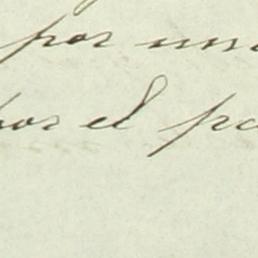 por una
por el pa